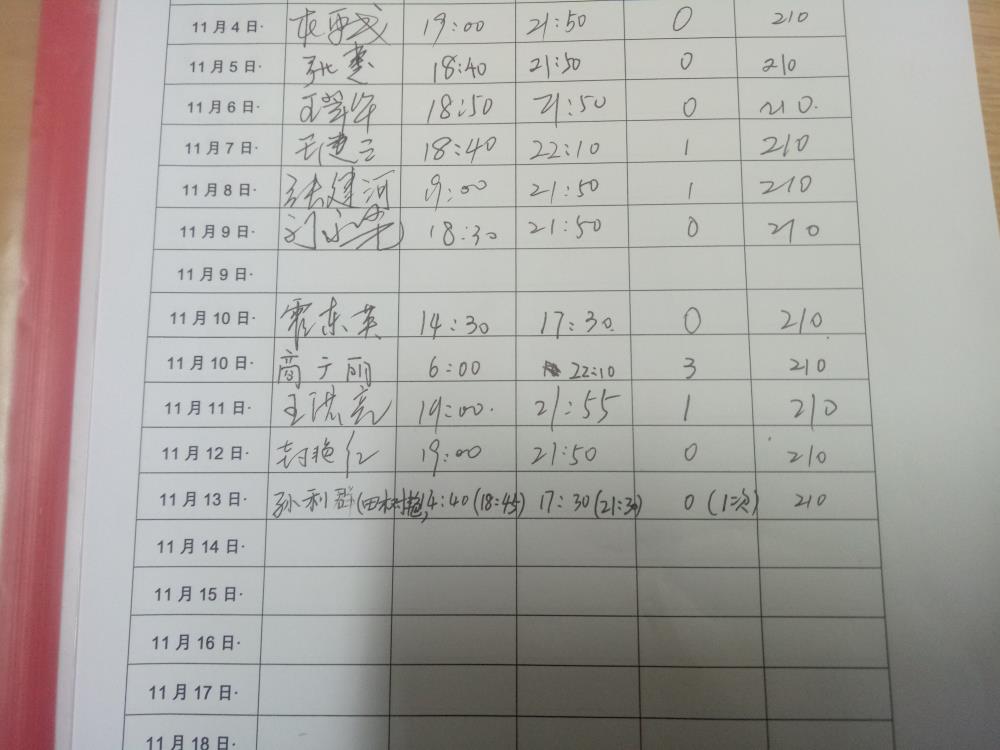 11月4日· 19:00 21:50 0 210
11月5日· 张惠 18:40 21:50 0 210
11月6日· 王翠华 18:50 21:50 0 210.
11月7日· 王建云 18:40 22:10 1 210
11月8日· 张建河 19:00 21:50 1 210
11月9日· 18:30 21:50 0 210
11月9日·
11月10日· 霍东英 14:30 17:30. 0 210
11月10日· 商于丽 6:00 22:10 3 210
11月11日· 王洪亮 19:00. 21:55 1 210
11月12日· 封艳红 19:00 21:50 0 210
11月13日· 孙利群(田树艳) 14:40(18:45) 17:30(21:30) 0(1次) 210
11月14日·
11月15日·
11月16日·
11月17日·
11月18日·